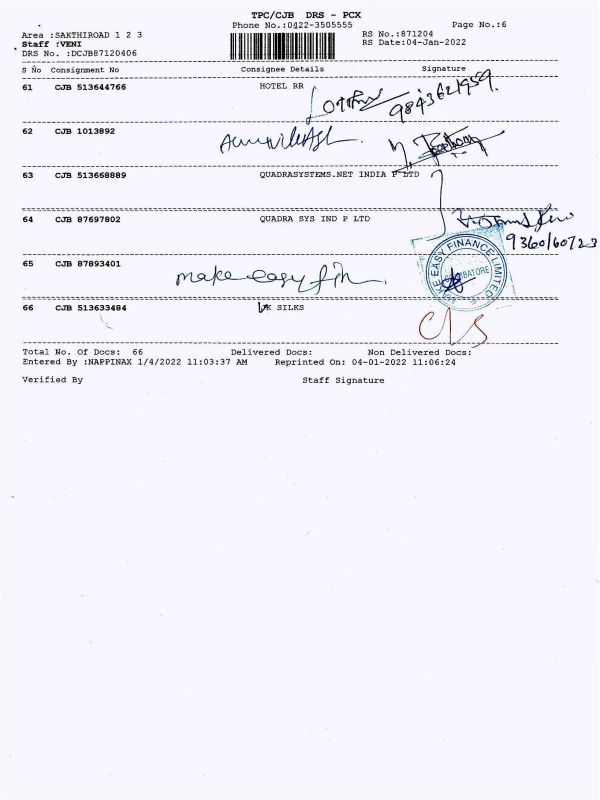 TPC/CJB DRS - PCX
Phone No.:0422-3505555 Page No.:6
Area :SAKTHIROAD 1 2 3 RS No.:871204
Staff :VENI RS Date:04-Jan-2022
DRS No. :DCJB87120406
S No Consignment No Consignee Details Signature
61 CJB 513644766 HOTEL RR
9843621959.
62 CJB 1013892
63 CJB 513668889 QUADRASYSTEMS.NET INDIA P LTD
64 CJB 87697802 QUADRA SYS IND P LTD
9360160723
65 CJB 87893401 make easy fin. MAKE EASY FINANCE LIMITED COIMBATORE
66 CJB 513633484 VK SILKS
Total No. Of Docs: 66 Delivered Docs: Non Delivered Docs:
Entered By :NAPPINAX 1/4/2022 11:03:37 AM Reprinted On: 04-01-2022 11:06:24
Verified By Staff Signature